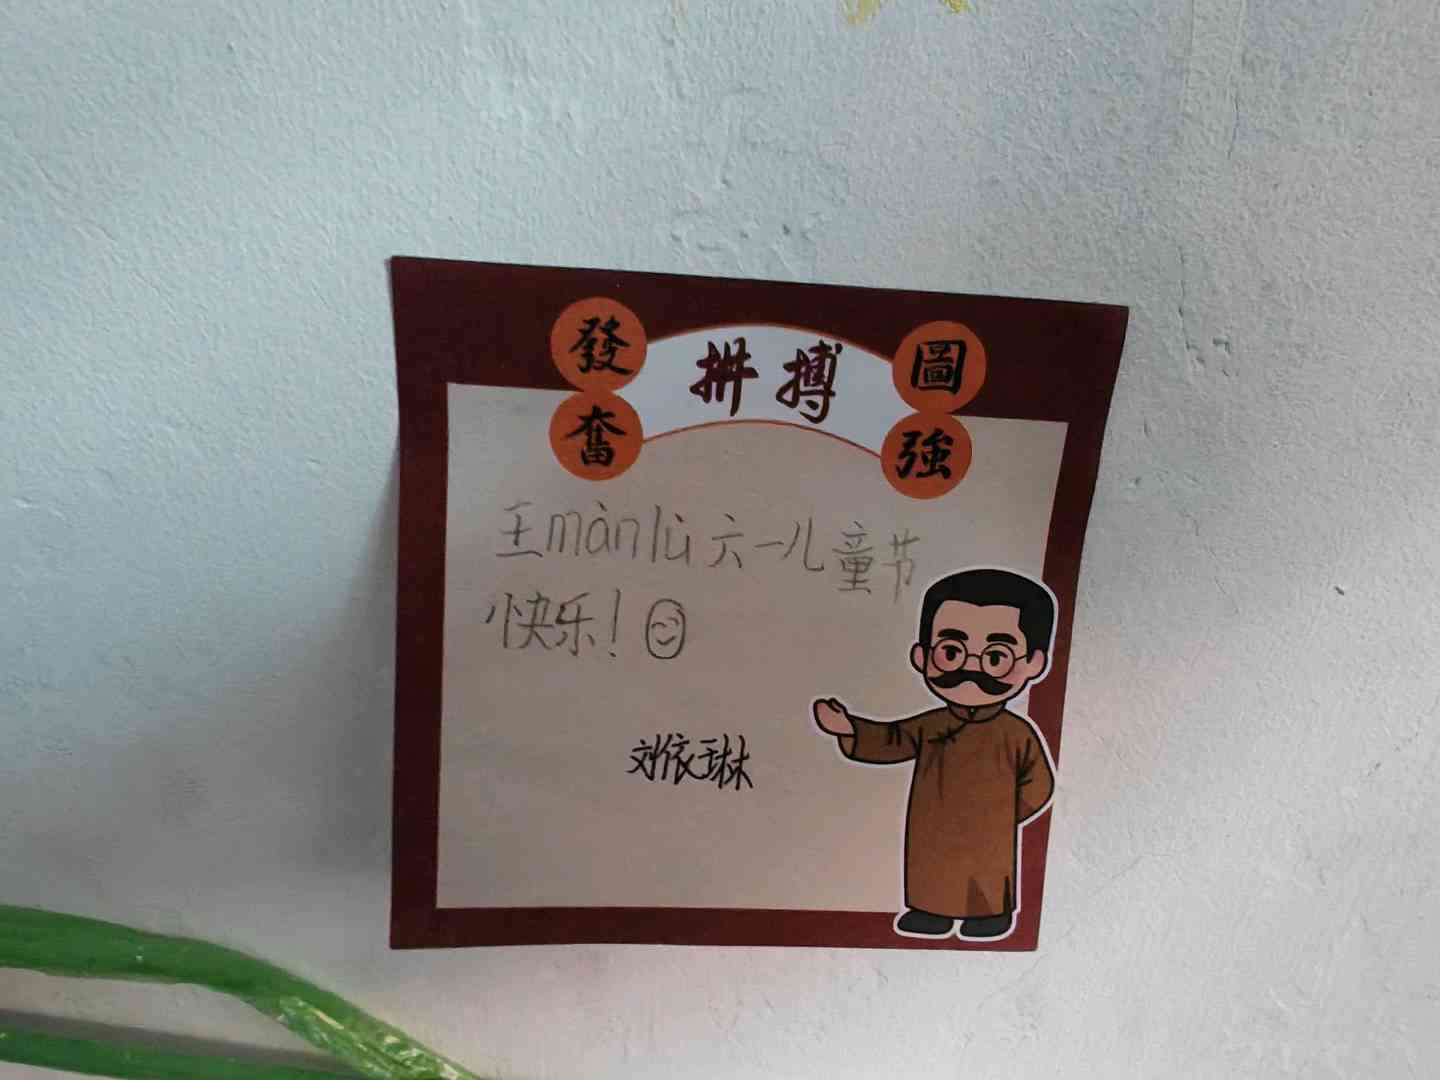 發奮
拼搏
圖強
王mànlù六一儿童节
快乐!
刘依琳